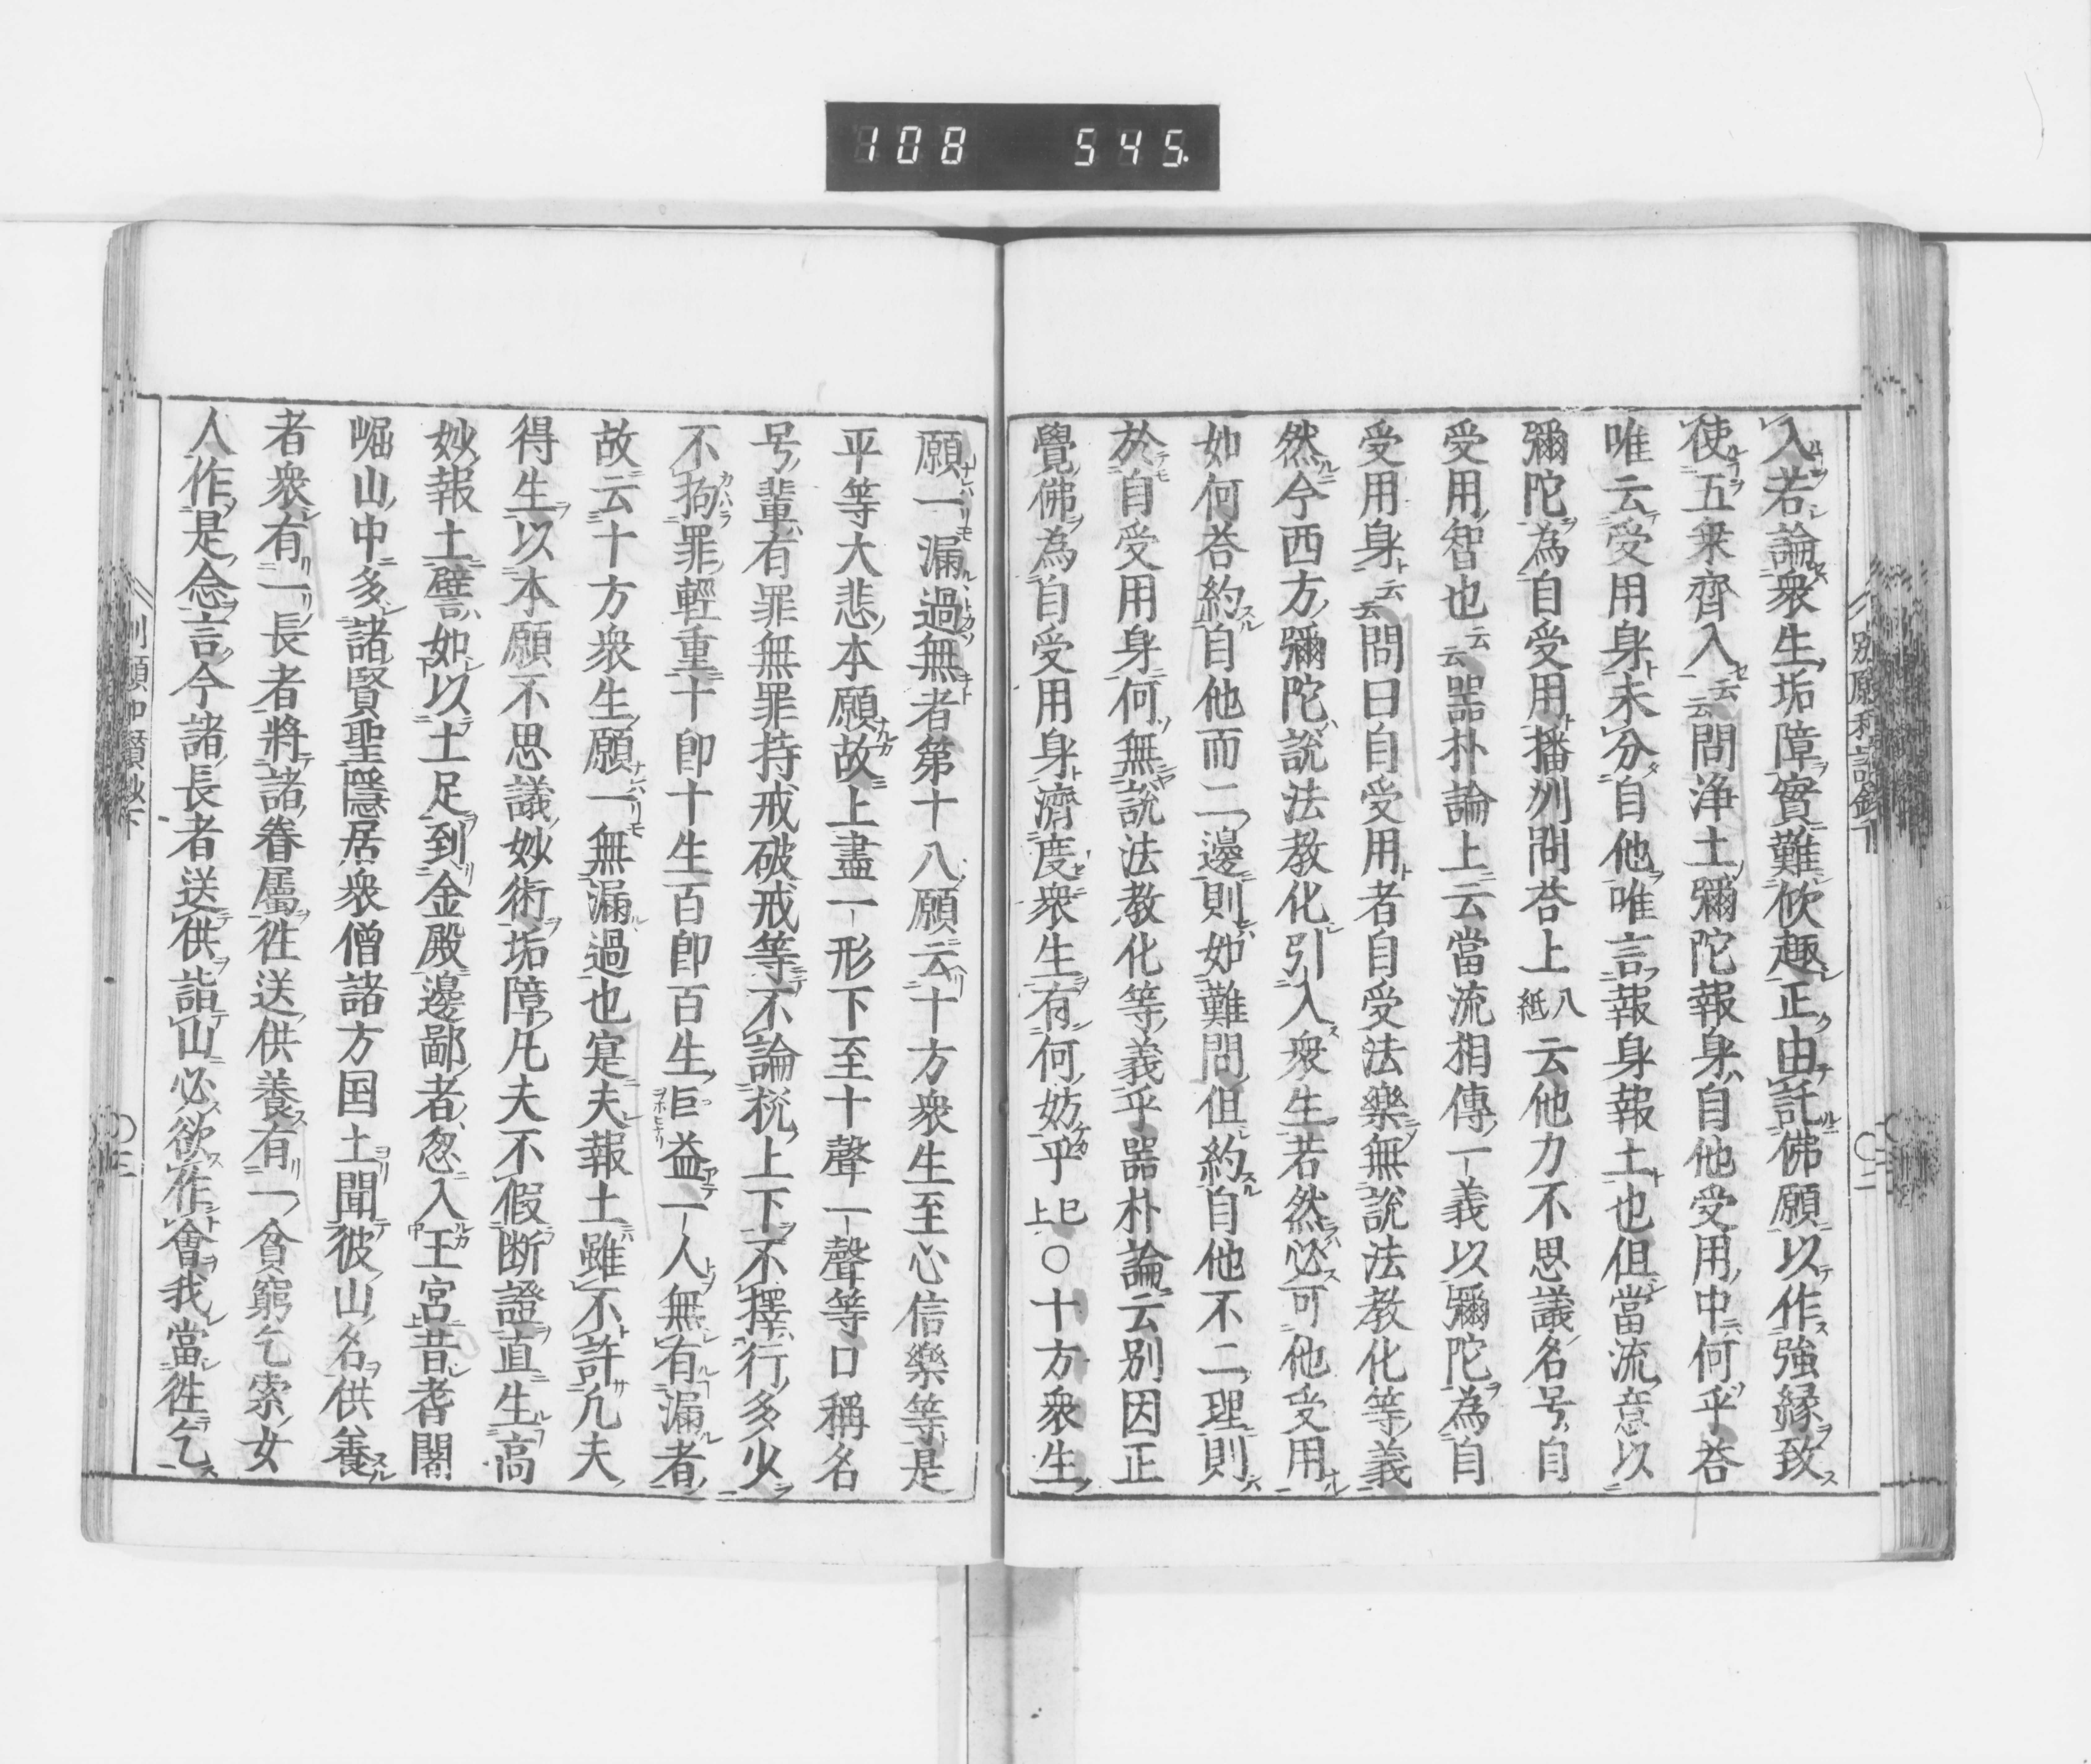 108 545.
入若論衆生垢障實難欣趣正由託佛願以作強縁致
使五乗齊入云云問浄土彌陀報身自他受用中何乎荅
唯云受用身未分自他唯言報身報土也但當流意以
彌陀為自受用播州問荅上八紙云他力不思議名号自
受用智也云云噐朴論上云當流相傳一義以彌陀為自
受用身云云問曰自受用者自受法樂無說法教化等義
然今西方彌陀說法教化引入衆生若然必可他受用
如何荅約自他而二邊則如難問但約自他不二理則
於自受用身何無說法教化等義乎噐朴論云別因正
覺佛為自受用身濟度衆生有何妨乎已上○十方衆生
願一漏過無者第十八願云十方衆生至心信樂等是
平等大悲本願故上盡一形下至十聲一聲等口稱名
号輩有罪無罪持戒破戒等不論機上下不擇行多少
不拘罪輕重十即十生百即百生巨益一人無有漏者
故云十方衆生願一無漏過也寔夫報土雖不許凢夫
得生以本願不思議妙術垢障凢夫不假断證直生高
妙報土譬如以土足到金殿邊鄙者忽入王宮昔耆闍
崛山中多諸賢聖隱居衆僧諸方国土聞彼山名供養
者衆有一長者將諸眷屬徃送供養有一貧窮乞索女
人作是念言今諸長者送供詣山必欲作會我當徃乞